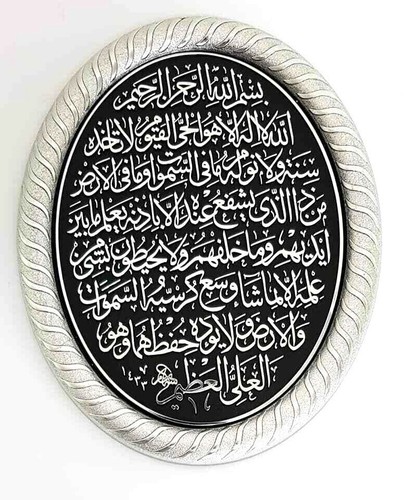 بسم الله الرحمن الرحيم
الله لا اله الا هو الحي القيوم لا تأخذه
سنة ولا نوم له ما في السموات وما في الارض
من ذا الذي يشفع عنده الا باذنه يعلم ما بين
ايديهم وما خلفهم ولا يحيطون بشيء من
علمه الا بما شاء وسع كرسيه السموات
والارض ولا يؤده حفظهما وهو
العلي العظيم